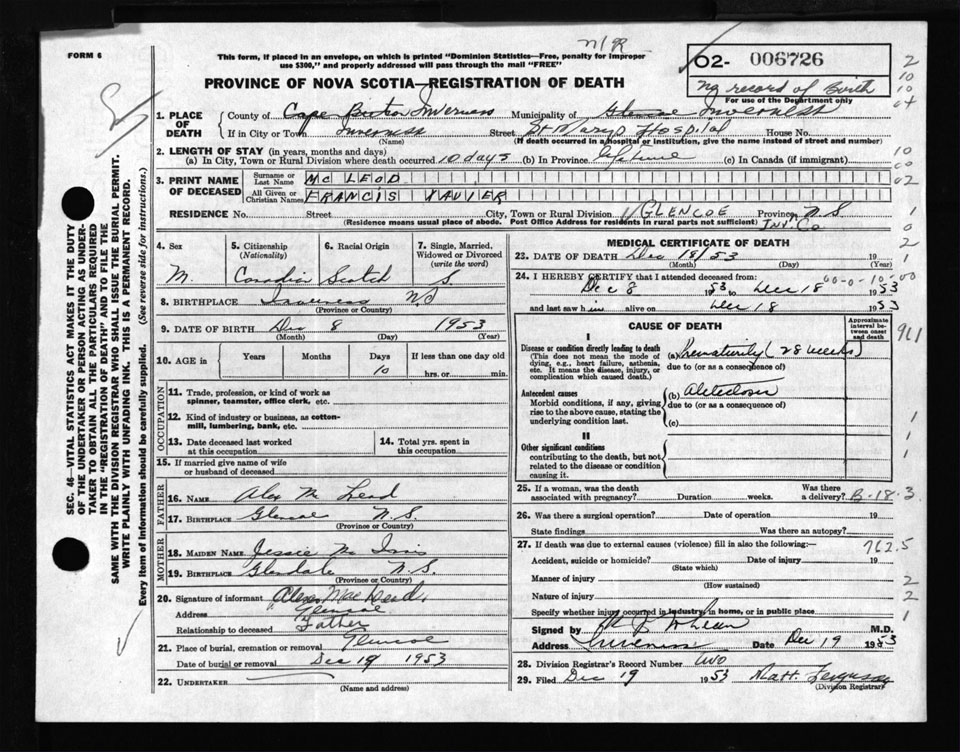 FORM 6
This form, if placed in an envelope, on which is printed "Dominion Statistics—Free, penalty for improper
use $300," and properly addressed will pass through the mail "FREE"
O2- 006726
PROVINCE OF NOVA SCOTIA—REGISTRATION OF DEATH
No record of Birth
For use of the Department only
1. PLACE OF DEATH
County of Cape Breton Inverness Municipality of Glencoe Inverness
If in City or Town Inverness Street St Marys Hospital House No.
(Name) (If death occurred in a hospital or institution, give the name instead of street and number)
2. LENGTH OF STAY (in years, months and days)
(a) In City, Town or Rural Division where death occurred 10 days (b) In Province lifetime (c) In Canada (if immigrant)
3. PRINT NAME OF DECEASED
Surname or Last Name MC LEOD
All Given or Christian Names FRANCIS XAVIER
RESIDENCE No. Street City, Town or Rural Division GLENCOE Province N.S.
(Residence means usual place of abode. Post Office Address for residents in rural parts not sufficient) INV. Co
4. Sex M.
5. Citizenship (Nationality) Canadian
6. Racial Origin Scotch
7. Single, Married, Widowed or Divorced (write the word) S.
8. BIRTHPLACE Inverness N.S
(Province or Country)
9. DATE OF BIRTH Dec 8 1953
(Month) (Day) (Year)
10. AGE in Years Months Days If less than one day old
10 hrs. or min.
OCCUPATION
11. Trade, profession, or kind of work as
spinner, teamster, office clerk, etc.
12. Kind of industry or business, as cotton-
mill, lumbering, bank, etc.
13. Date deceased last worked
at this occupation
14. Total yrs. spent in
this occupation
15. If married give name of wife
or husband of deceased
FATHER
16. NAME Alex Mc Leod
17. BIRTHPLACE Glencoe N.S.
(Province or Country)
MOTHER
18. MAIDEN NAME Jessie Mc Innis
19. BIRTHPLACE Glendale N.S
(Province or Country)
20. Signature of informant Alex MacLeod
Address Glencoe
Relationship to deceased Father
21. Place of burial, cremation or removal Glencoe
Date of burial or removal Dec 19 1953
22. UNDERTAKER
(Name and address)
MEDICAL CERTIFICATE OF DEATH
23. DATE OF DEATH Dec 18/53 19
(Month) (Day) (Year)
24. I HEREBY CERTIFY that I attended deceased from:
Dec 8 1953 to Dec 18 1953
and last saw him alive on Dec 18 1953
CAUSE OF DEATH
Approximate interval between onset and death
I
Disease or condition directly leading to death (a) Prematurity (28 weeks)
(This does not mean the mode of
dying, e.g., heart failure, asthenia,
etc. It means the disease, injury, or
complication which caused death.)
due to (or as a consequence of)
Antecedent causes (b) Atelectasis
Morbid conditions, if any, giving
rise to the above cause, stating the
underlying condition last.
due to (or as a consequence of)
(c)
II
Other significant conditions
contributing to the death, but not
related to the disease or condition
causing it.
25. If a woman, was the death
associated with pregnancy? Duration weeks. Was there
a delivery? B-18-3
26. Was there a surgical operation? Date of operation 19
State findings Was there an autopsy?
27. If death was due to external causes (violence) fill in also the following:—
762.5
Accident, suicide or homicide? Date of injury 19
(State which)
Manner of injury
(How sustained)
Nature of injury
Specify whether injury occurred in industry, in home, or in public place
Signed by M.D.
Address Inverness Date Dec 19 1953
28. Division Registrar's Record Number two
29. Filed Dec 19 1953 Matt Ferguson
(Division Registrar)
SEC. 46—VITAL STATISTICS ACT MAKES IT THE DUTY
OF THE UNDERTAKER OR PERSON ACTING AS UNDER-
TAKER TO OBTAIN ALL THE PARTICULARS REQUIRED
IN THE "REGISTRATION OF DEATH" AND TO FILE THE
SAME WITH THE DIVISION REGISTRAR WHO SHALL ISSUE THE BURIAL PERMIT.
WRITE PLAINLY WITH UNFADING INK. THIS IS A PERMANENT RECORD.
Every item of Information should be carefully supplied. (See reverse side for instructions.)